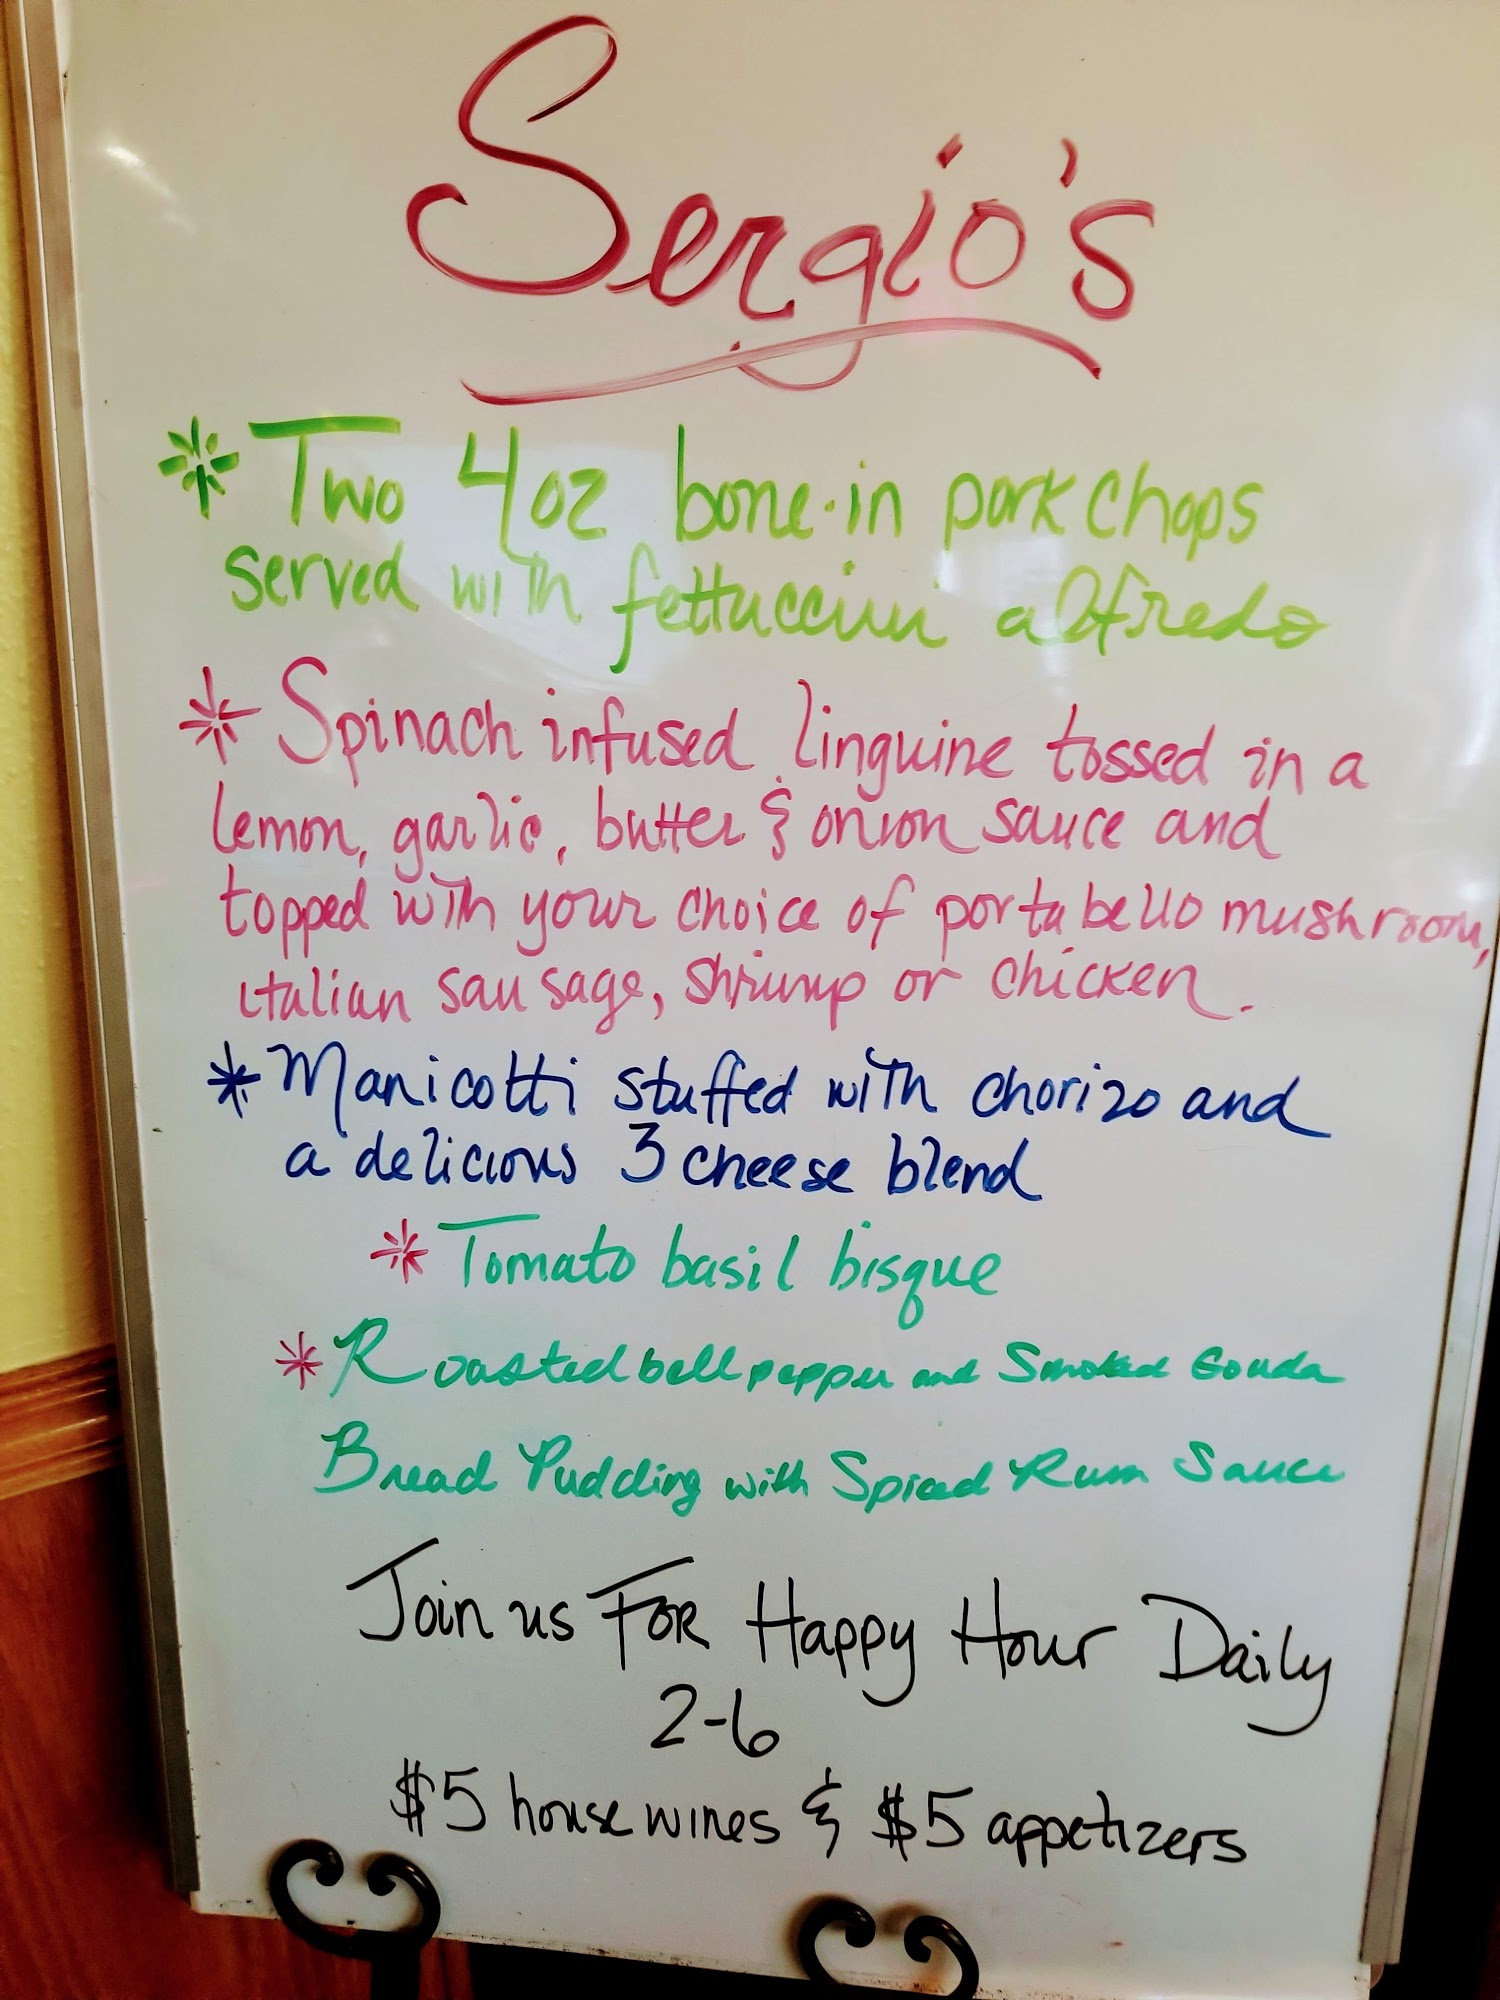 Sergio's
* Two 4oz bone-in pork chops
served with fettuccini alfredo
* Spinach infused linguine tossed in a
lemon, garlic, butter & onion sauce and
topped with your choice of portabello mushroom,
italian sausage, shrimp or chicken.
* Manicotti stuffed with chorizo and
a delicious 3 cheese blend
* Tomato basil bisque
* Roasted bell pepper and Smoked Gouda
Bread Pudding with Spiced Rum Sauce
Join us FOR Happy Hour Daily
2-6
$5 house wines & $5 appetizers